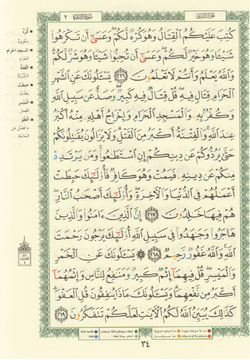 كُتِبَ عَلَيْكُمُ الْقِتَالُ وَهُوَ كُرْهٌ لَكُمْ وَعَسَى أَنْ تَكْرَهُوا
شَيْئًا وَهُوَ خَيْرٌ لَكُمْ وَعَسَى أَنْ تُحِبُّوا شَيْئًا وَهُوَ شَرٌّ لَكُمْ
وَاللَّهُ يَعْلَمُ وَأَنْتُمْ لَا تَعْلَمُونَ ٢١٦ يَسْأَلُونَكَ عَنِ الشَّهْرِ
الْحَرَامِ قِتَالٍ فِيهِ قُلْ قِتَالٌ فِيهِ كَبِيرٌ وَصَدٌّ عَنْ سَبِيلِ اللَّهِ
وَكُفْرٌ بِهِ وَالْمَسْجِدِ الْحَرَامِ وَإِخْرَاجُ أَهْلِهِ مِنْهُ أَكْبَرُ
عِنْدَ اللَّهِ وَالْفِتْنَةُ أَكْبَرُ مِنَ الْقَتْلِ وَلَا يَزَالُونَ يُقَاتِلُونَكُمْ
حَتَّى يَرُدُّوكُمْ عَنْ دِينِكُمْ إِنِ اسْتَطَاعُوا وَمَنْ يَرْتَدِدْ
مِنْكُمْ عَنْ دِينِهِ فَيَمُتْ وَهُوَ كَافِرٌ فَأُولَئِكَ حَبِطَتْ
أَعْمَالُهُمْ فِي الدُّنْيَا وَالْآخِرَةِ وَأُولَئِكَ أَصْحَابُ النَّارِ
هُمْ فِيهَا خَالِدُونَ ٢١٧ إِنَّ الَّذِينَ آمَنُوا وَالَّذِينَ
هَاجَرُوا وَجَاهَدُوا فِي سَبِيلِ اللَّهِ أُولَئِكَ يَرْجُونَ رَحْمَتَ
اللَّهِ وَاللَّهُ غَفُورٌ رَحِيمٌ ٢١٨ يَسْأَلُونَكَ عَنِ الْخَمْرِ
وَالْمَيْسِرِ قُلْ فِيهِمَا إِثْمٌ كَبِيرٌ وَمَنَافِعُ لِلنَّاسِ وَإِثْمُهُمَا
أَكْبَرُ مِنْ نَفْعِهِمَا وَيَسْأَلُونَكَ مَاذَا يُنْفِقُونَ قُلِ الْعَفْوَ
كَذَلِكَ يُبَيِّنُ اللَّهُ لَكُمُ الْآيَاتِ لَعَلَّكُمْ تَتَفَكَّرُونَ ٢١٩
٣٤